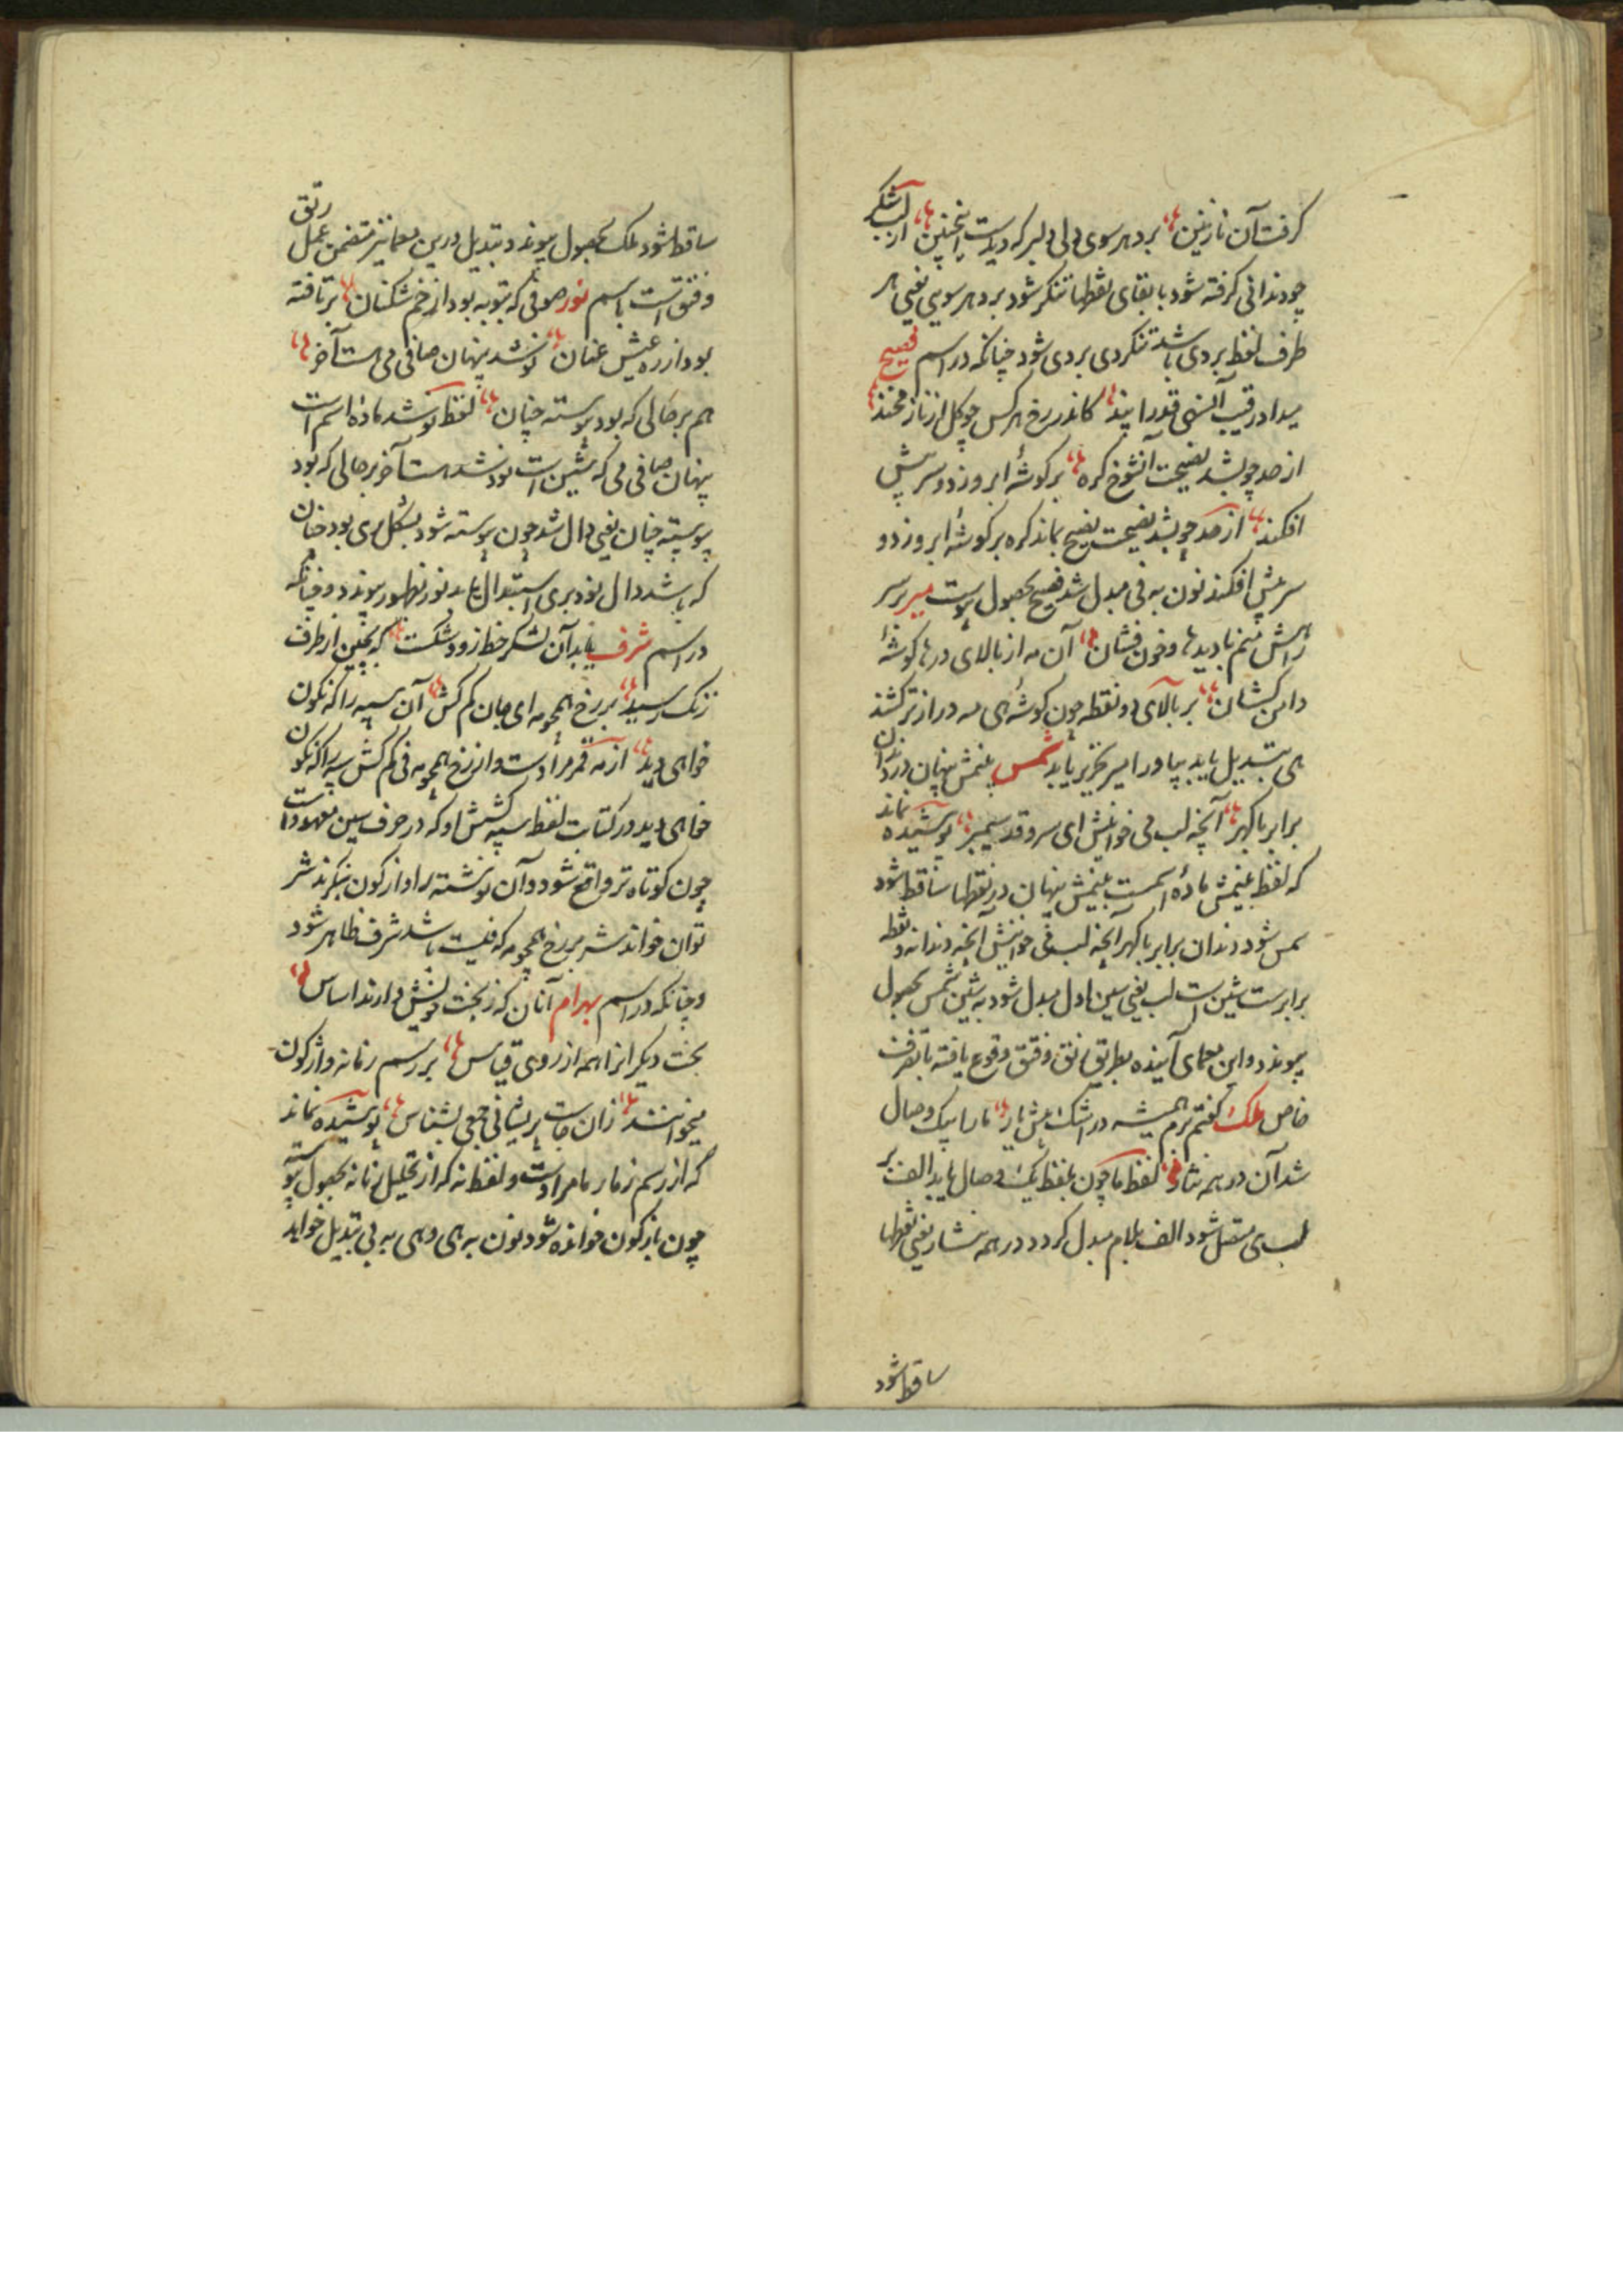 گرفت آن نازنین بر دهر سوی دلی دلبر که دیدست اینچنین از لب شکر
چو دندانی گرفته شود با بقای نقطها تنکر شود بر دهر سویی یعنی هر
طرف لفظ بردی باشد تنکردی بردی شود چنانکه در اسم فصیح
میداد رقیب آن قدر پند کاندر رخ هر کس چو گل از ناز مخند
از حد چو بشد نصیحت آن شوخ گره بر گوشهٔ ابرو زد و سر پیش
افکند از حد چو بشد نصیحت نصیح بماند گره بر گوشهٔ ابرو زد و
سر پیش افکند نون به فی مبدل شد فصیح بحصول پیوست میر بر سر
راهش منم با دیدها و خون فشان آن مه از بالای درها گوشهٔ
دامن کشان بر بالای دو نقطه چون گوشهٔ هی مه دراز تر کشند
هی بتبدیل یابد بیا و را میر تحریر یابد شمس بنمش پنهان در دندان
برابر با گهر آنچه لب می خوانیش ای سرو قد سیمبر پوشیده نماند
که لفظ بنمش مادهٔ اسمست بنمش پنهان در نقطها ساقط شود
مس شود دندان برابر با گهر آنچه لب می خوانیش آنچه دندانه و نقطه
برابرست شین است لب یعنی سین اول مبدل شود به شین شمس بحصول
پیوندد و این معمای آینده بطریق رتق و فتق وقوع یافته با تصرف
خاص ملک گفتم نرم همیشه در اشکش یار تا ما بیک وصال
شد آن در همه نثار لفظ ما چون بلفظ یک وصال یابد الف بر
لب ی متصل شود الف بلام مبدل گردد در همه نثار یعنی نقطها
ساقط شود
ساقط شود ملک بحصول پیوندد و تبدیل درین معما نیز متضمن عمل رتق
و فتق است باسم نور صوفی که بتوبه بود از خم شکنان بر تافته
بود از ره عیش عنان نوشد پنهان صافی می هست آخر
هم بر حالی که بود پیوسته چنان لفظ نوشد مادهٔ اسم است
پنهان صافی می که شین است نود شد هست آخر بر حالی که بود
پیوسته چنان یعنی دال شد چون پیوسته شود بشکل ری بود چنان
که باشد دال نود بری استبدال یابد نور بظهور پیوندد و چنانکه
در اسم شرف یابد آن لشکر خط ز و شکست که بچین از طرف
زنگ رسید بر رخ همچو مه ای جان کم کش آن سپه را که نگون
خواهی دید از مه قمر مرادست و از رخ همچو مه فی کم کش سپه را که نگون
خواهی دید در کتابت لفظ سپه کشش او که در حرف سین معهودست
چون کوتاه تر واقع شود و آن نوشته را واژگون بنگرند شر
توان خواند شر بر رخ همچو مه که فیست باشد شرف ظاهر شود
و چنانکه در اسم بهرام آنان که ز بخت خویش دارند اساس
بخت دیگر انرا همه از روی قیاس بر رسم زمانه واژگون
میخوانند زان جاست پریشانی جمعی بشناس پوشیده نماند
که از رسم زمار ما مرادست و لفظ نه که از تحلیل زمانه بحصول پیوسته
چون باژگون خوانده شود نون به هی و هی به بی تبدیل خواهد